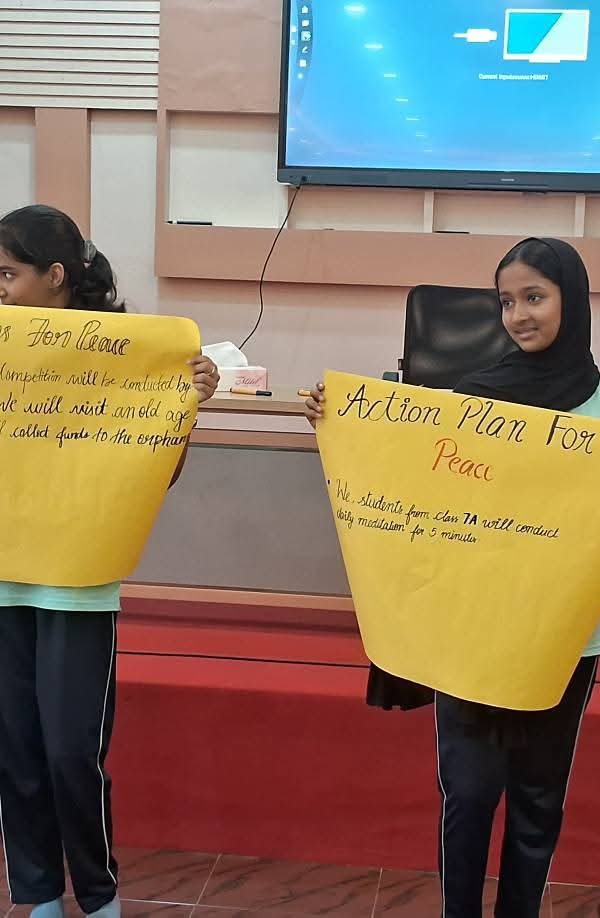 For Peace
Competition will be conducted by
We will visit an old age
collect funds to the orphan
Action Plan For
Peace
• We, students from class 7A will conduct
daily meditation for 5 minutes